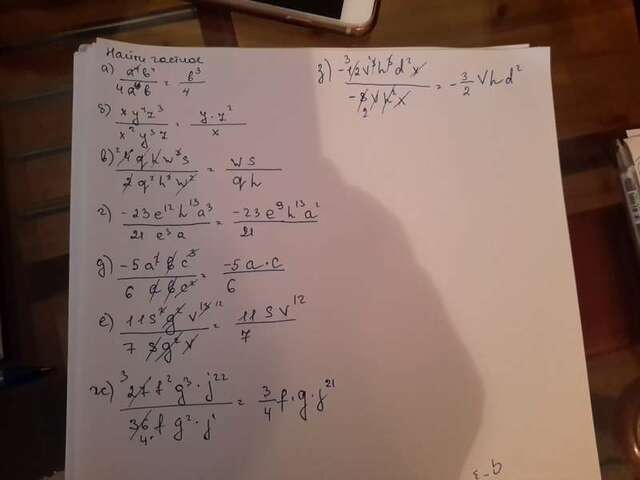 Найти частное
а) a⁴b⁴ / 4a⁴b = b³ / 4
б) xy⁴z³ / x²y³z = y·z² / x
в) ²4ghw³s / 2g²h²w² = ws / gh
г) -23e¹²h¹³a³ / 21 e³a = -23e⁹h¹³a² / 21
д) -5a²bc³ / 6abc² = -5a·c / 6
е) 11s²g²v¹³ ¹² / 7sg²v = 11sv¹² / 7
ж) ³27f²g³·j²² / 36₄ f g²·j¹ = 3/4 f·g·j²¹
з) -³12v²h³d²x / -8₂vh²x = -3/2 Vhd²